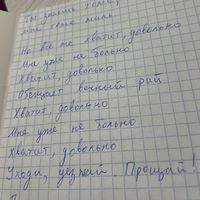 Ты знаешь сама,
мне тоже жаль
Но всё же хватит, довольно
Мне уже не больно
Хватит, довольно
Обещает вечный рай
Хватит, довольно
Мне уже не больно
Хватит, довольно
Уходи, уезжай. Прощай!